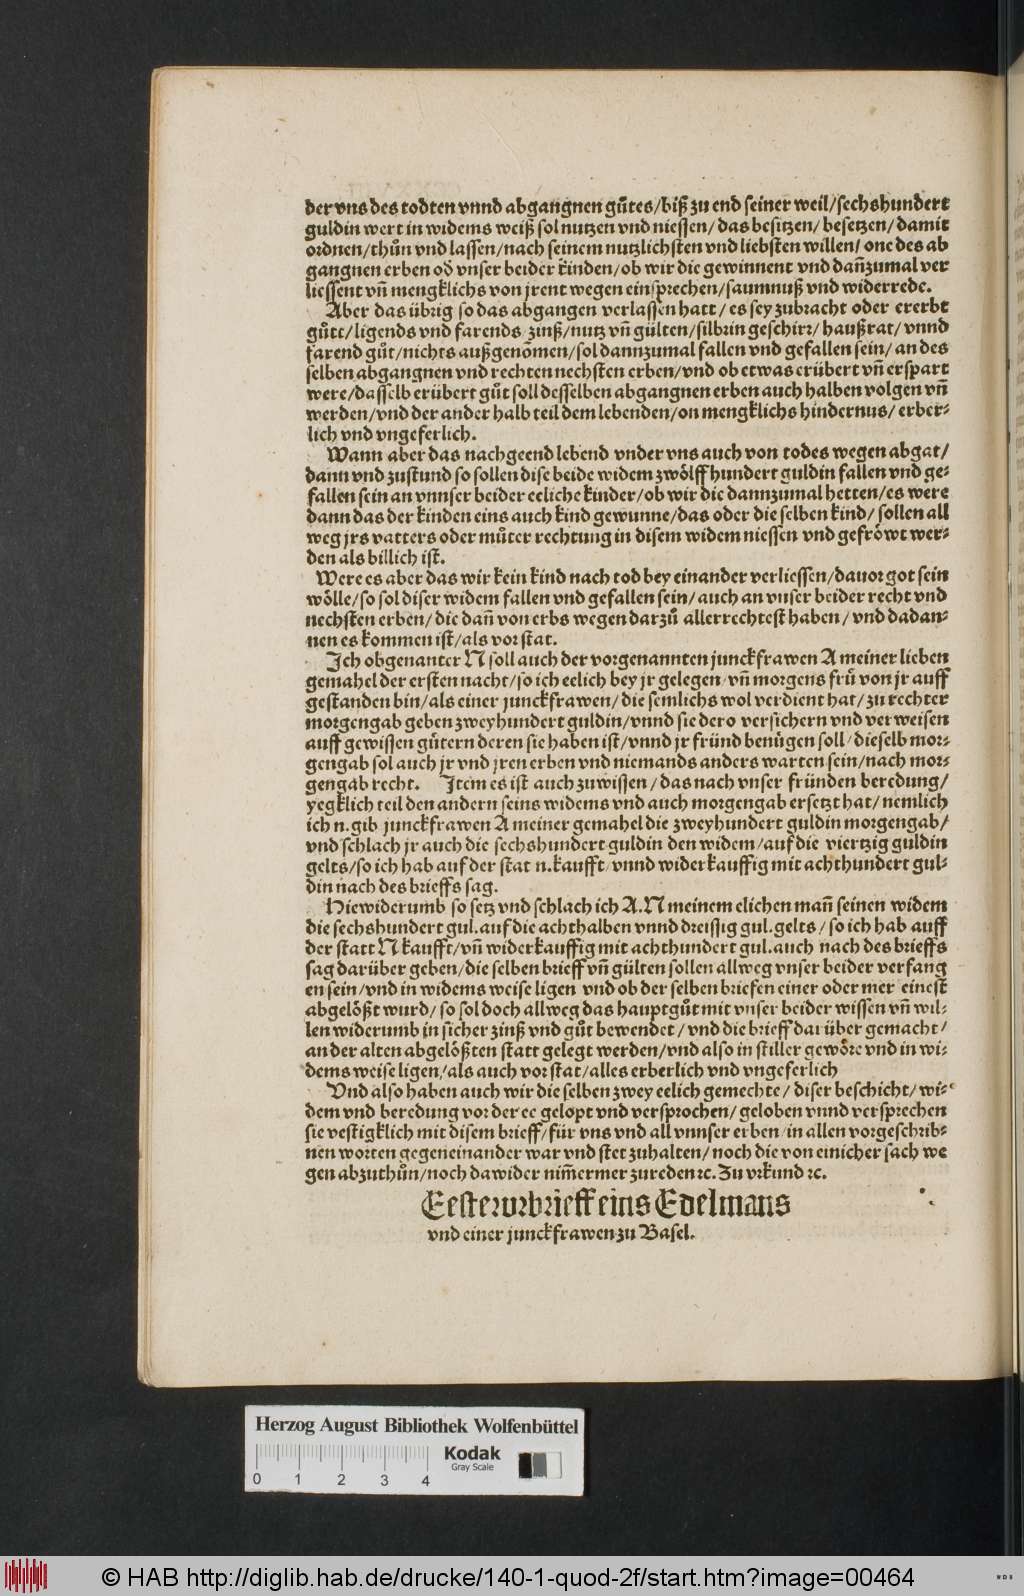 der vns des todten vnnd abgangnen gůtes/biß zu end seiner weil/sechshundert
guldin wert in widems weiß sol nutzen vnd niessen/das besitzen/besetzen/damit
ordnen/thůn vnd lassen/nach seinem nutzlichsten vnd liebsten willen/one des ab
gangnen erben od̕ vnser beider kinden/ob wir die gewinnent vnd dañzumal ver
liessent vñ mengklichs von jrent wegen einsprechen/saumnuß vnd widerrede.
Aber das übrig so das abgangen verlassen hatt/es sey zubracht oder ererbt
gůtt/ligends vnd farends/zinß/nutz vñ gülten/silbrin geschirr/haußrat/vnnd
farend gůt/nichts außgenõmen/sol dannzumal fallen vnd gefallen sein/an des
selben abgangnen vnd rechten nechsten erben/vnd ob etwas erübert vñ erspart
were/dasselb erübert gůt soll desselben abgangnen erben auch halben volgen vñ
werden/vnd der ander halb teil dem lebenden/on mengklichs hindernus/erber⸗
lich vnd vngeferlich.
Wann aber das nachgeend lebend vnder vns auch von todes wegen abgat/
dann vnd zustund so sollen dise beide widem zwölff hundert guldin fallen vnd ge⸗
fallen sein an vnnser beider eeliche kinder/ob wir die dannzumal hetten/es were
dann das der kinden eins auch kind gewunne/das oder die selben kind/sollen all
weg jrs vatters oder můter rechtung in disem widem niessen vnd gefröwt wer⸗
den als billich ist.
Were es aber das wir kein kind nach tod bey einander verliessen/dauor got sein
wölle/so sol diser widem fallen vnd gefallen sein/auch an vnser beider recht vnd
nechsten erben/die dañ von erbs wegen darzů allerrechtest haben/vnd dadan⸗
nen es kommen ist/als vor stat.
Ich obgenanter N soll auch der vorgenannten junckfrawen A meiner lieben
gemahel der ersten nacht/so ich eelich bey jr gelegen/vñ morgens frů von jr auff
gestanden bin/als einer junckfrawen/die semlichs wol verdient hat/zu rechter
morgengab geben zweyhundert guldin/vnnd sie dero versichern vnd verweisen
auff gewissen gůtern deren sie haben ist/vnnd jr fründ benůgen soll/dieselb mor⸗
gengab sol auch jr vnd jren erben vnd niemands anders warten sein/nach mor⸗
gengab recht. Item es ist auch zuwissen/das nach vnser fründen beredung/
yegklich teil den andern seins widems vnd auch morgengab ersetzt hat/nemlich
ich n. gib junckfrawen A meiner gemahel die zweyhundert guldin morgengab/
vnd schlach jr auch die sechshundert guldin den widem/auf die viertzig guldin
gelts/so ich hab auf der stat n. kaufft/vnnd widerkauffig mit achthundert gul⸗
din nach des brieffs sag.
Hiewiderumb so setz vnd schlach ich A.N meinem elichen mañ seinen widem
die sechshundert gul. auf die achthalben vnnd dreissig gul. gelts/so ich hab auff
der statt N kaufft/vñ widerkauffig mit achthundert gul. auch nach des brieffs
sag darüber geben/die selben brieff vñ gülten sollen allweg vnser beider verfang
en sein/vnd in widems weise ligen vnd ob der selben briefen einer oder mer einest
abgelößt wurd/so sol doch allweg das hauptgůt mit vnser beider wissen vñ wil⸗
len widerumb in sicher zinß vnd gůt bewendet/vnd die brieff darüber gemacht/
an der alten abgelößten statt gelegt werden/vnd also in stiller gewöre vnd in wi⸗
dems weise ligen/als auch vor stat/alles erberlich vnd vngeferlich
Und also haben auch wir die selben zwey eelich gemechte/diser beschicht/wi⸗
dem vnd beredung vor der ee gelopt vnd versprochen/geloben vnnd versprechen
sie vestigklich mit disem brieff/für vns vnd all vnnser erben/in allen vorgeschrib⸗
nen worten gegeneinander war vnd stet zuhalten/noch die von einicher sach we
gen abzuthůn/noch dawider nim̃ermer zureden ⁊c. Zu vrkund ⁊c.
Eesteurbrieff eins Edelmans
vnd einer junckfrawen zu Basel.
Herzog August Bibliothek Wolfenbüttel
Kodak
Gray Scale
0 1 2 3 4
© HAB http://diglib.hab.de/drucke/140-1-quod-2f/start.htm?image=00464